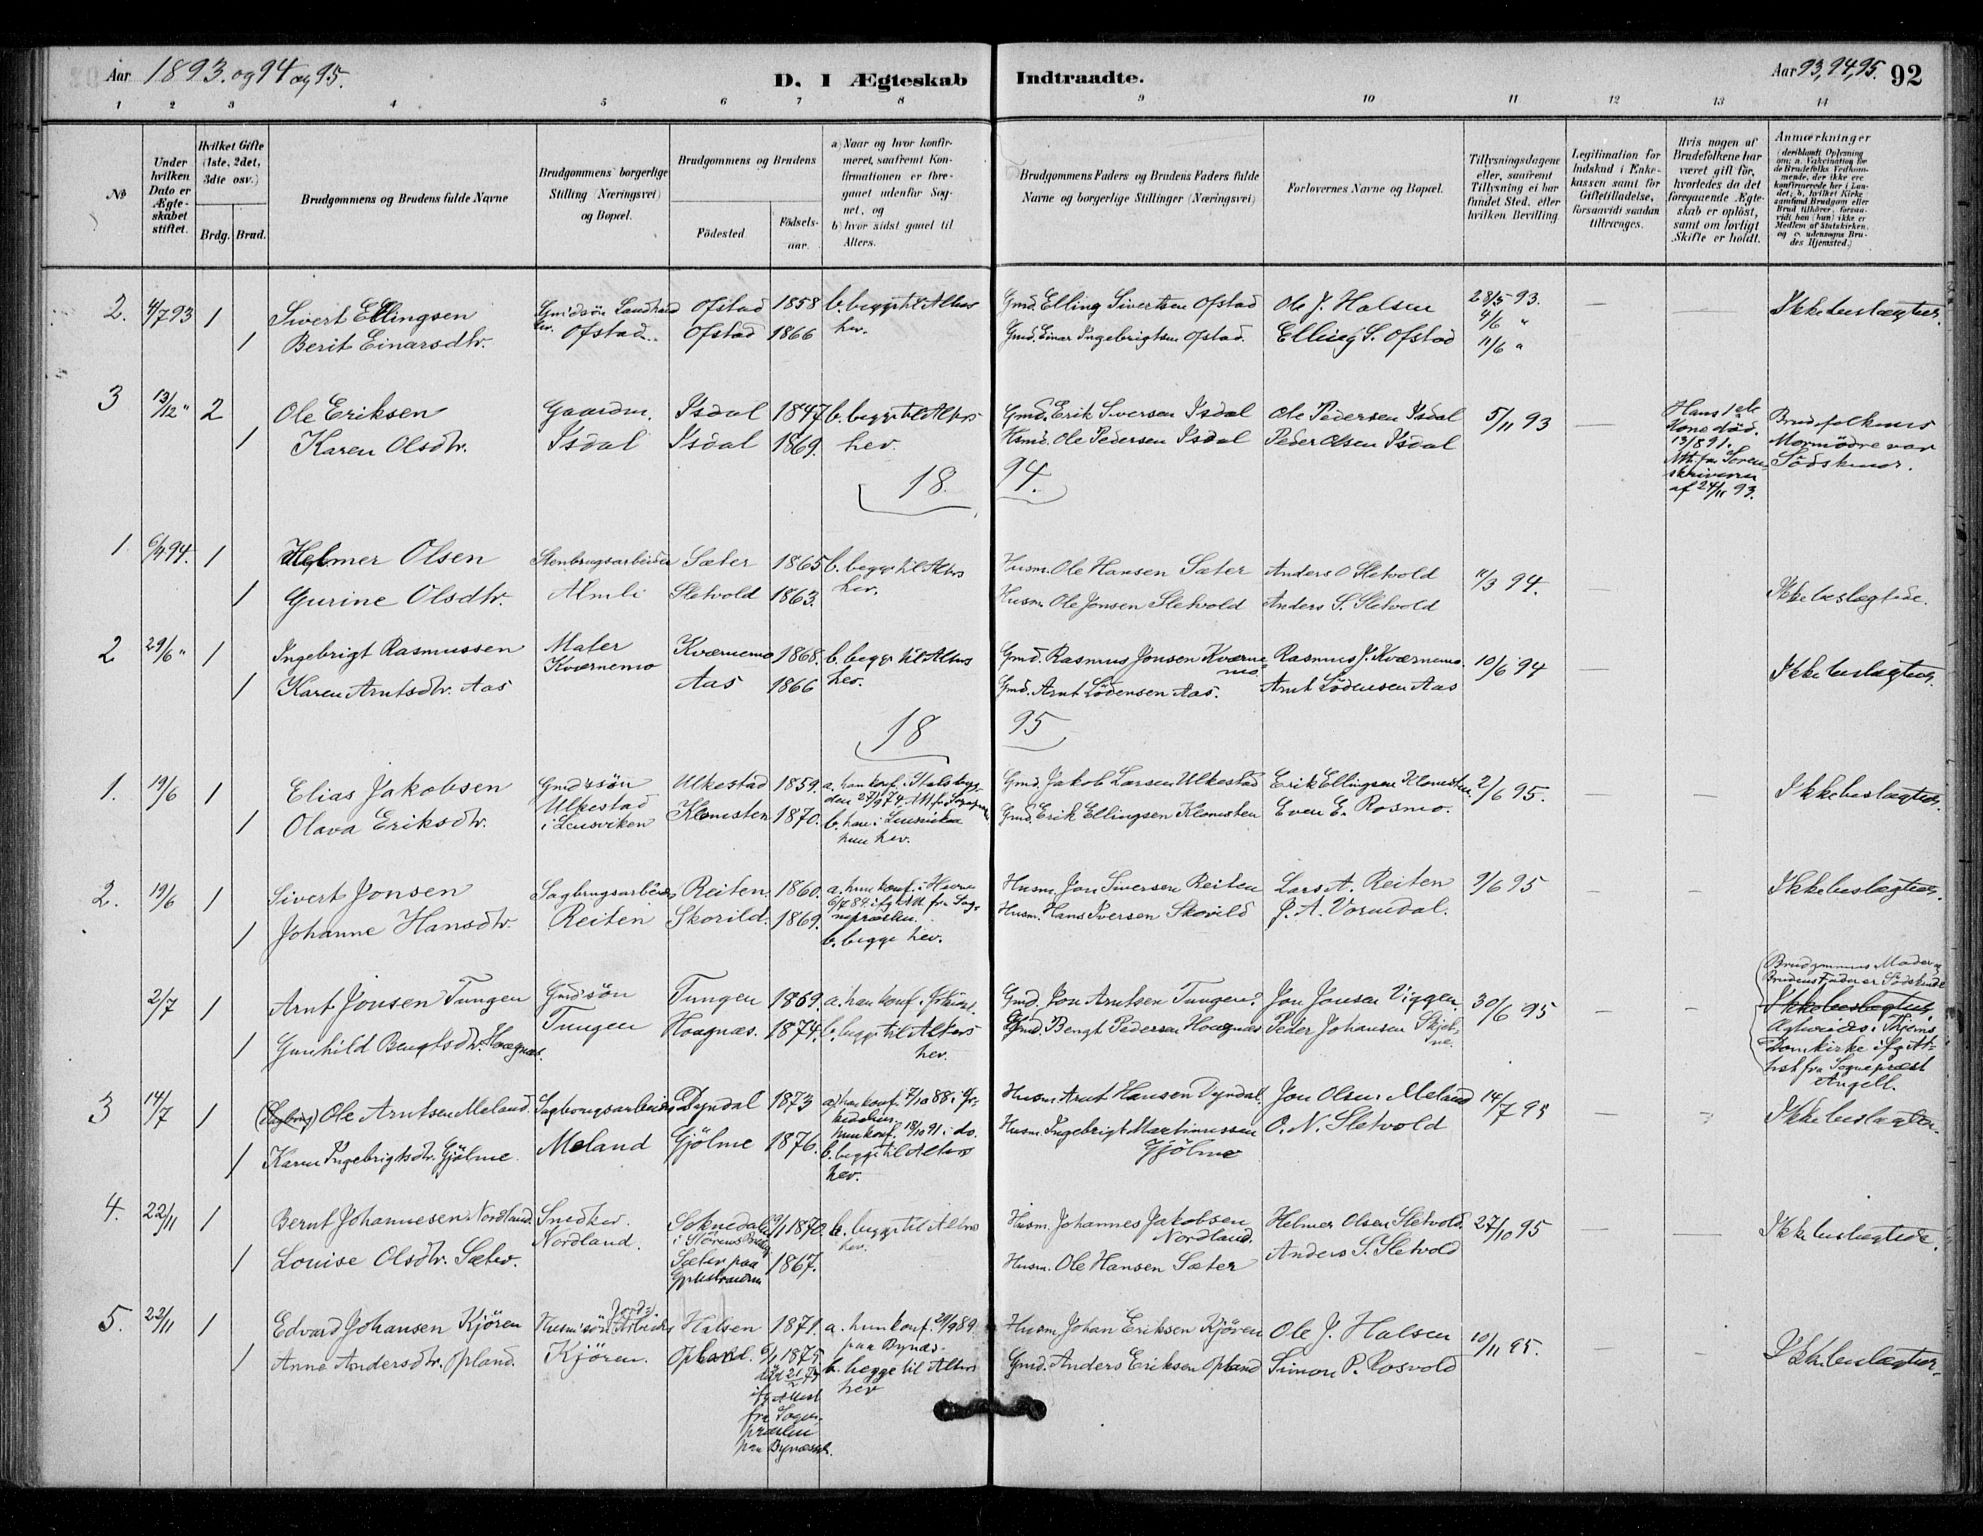 Aar 1893. og 94 og 95.
D. I Ægteskab Indtraadte.
Aar 93, 94, 95. 92
1 2 3 4 5 6 7 8 9 10 11 12 13 14
No
Under hvilken Dato er Ægteskabet stiftet.
Hvilket Gifte (1ste, 2det, 3die osv.)
Brdg. Brud.
Brudgommens og Brudens fulde Navne
Brudgommens borgerlige Stilling (Næringsvei) og Bopæl.
Brudgommens og Brudens
Födested. Födsels-aar.
a) Naar og hvor konfirmeret, saafremt Konfirmationen er foregaaet udenfor Sognet, og
b) hvor sidst gaaet til Alters.
Brudgommens Faders og Brudens Faders fulde Navne og borgerlige Stillinger (Næringsvei)
Forlovernes Navne og Bopæl.
Tillysningsdagene eller, saafremt Tillysning ei har fundet Sted, efter hvilken Bevilling.
Legitimation for Indskud i Enkekassen samt for Giftetilladelse, forsaavidt saadan tiltrænges.
Hvis nogen af Brudefolkene har været gift för, hvorledes da det foregaaende Ægteskab er oplöst, samt om lovligt Skifte er holdt.
Anmærkninger
2. 4/7 93 1 Sivert Ellingsen Ofstad 1858 b. begge til Alters Gmd. Elling Sivertsen Ofstad Ole J. Halsen 28/5 93. Ikke beslægtede.
1 Berit Einarsdtr. Ofstad Ofstad 1866 hev. Gmd. Einar Ingebrigtsen Ofstad. Elling S. Ofstad 4/6 "
11/6 "
3 13/12 " 2 Ole Eriksen Gaardm. Isdal 1847 b. begge til Alters Gmd. Erik Iversen Isdal Ole Pedersen Isdal 5/11 93 Hans 1ste Kone död 13/8 91. Brudefolkenes
1 Karen Olsdtr. Isdal Isdal 1869. hev. Husmd. Ole Pedersen Isdal Peder Olsen Isdal Att. fra Sorenskriveren af 24/11 93. Mormödre var Södskend.
18 94.
1 6/4 94. 1 Helmer Olsen Stenbrugsarbeider Sæter 1865 b. begge til Alters Husm. Ole Hansen Sæter Anders O Sletvold 11/3 94.
1 Gurine Olsdtr. Almli Sletvold 1863. hev. Husm. Ole Jonsen Sletvold Anders S. Sletvold Ikke beslægtede.
2 29/6 " 1 Ingebrigt Rasmussen Maler Kværnemo 1868. b. begge til Alters Gmd. Rasmus Jonsen Kværnemo Rasmus J. Kværnemo. 10/6 94 Ikke beslægtede.
1 Karen Arntsdtr. Aas Kværnemo Aas 1866 hev. Gmd. Arnt Lödensen Aas. Arnt Lödensen Aas
18 95
1. 19/6 1 Elias Jakobsen Gmdssön Ulkestad 1859. a. han konf. i Gmd. Jakob Larsen Ulkestad Erik Ellingsen Klomsten 2/6 95. Ikke beslægtede.
1 Olava Eriksdtr. Ulkestad i Lensviken Klomsten 1870. b. han i Lensviken hun hev. Gmd. Erik Ellingsen Klomsten Even E. Rosmo.
2. 19/6 1 Sivert Jonsen Sagbrugsarbeider Reiten 1860. a. hun konf. i 6/7 84 ifg Att fra Sognepræsten. Husm. Jon Siversen Reiten Lars A. Reiten 9/6 95 Ikke beslægtede.
1 Johanne Hansdtr. Reiten Skorild. 1869. b. begge hev. Husm. Hans Iversen Skorild J. A. Vormdal.
2/7 1 Arnt Jonsen Tungen Gmdsön Tungen 1859. a. han konf. i Gmd. Jon Arntsen Tungen. Jon Jonsen Viggen 30/6 95 Brudgommens Moder og Brudens Fader er Södskende
1 Gunhild Bengtsdtr. Hoagnæs. Tungen Hoagnæs. 1874. b. begge til Alters hev. Gmd. Bengt Pedersen Hoagnæs Peder Johansen Ikke beslægtede. Ægteviede i Thjems Domkirke ifg Attest fra Sognepræst Angell.
3 14/7 1 Ole Arntsen Meland. Sagbrugsarbeider Dyndal 1873 a. han konf. 7/10 88 i Husm. Arnt Hansen Dyndal. Jon Olsen Meland 14/7 95 Ikke beslægtede.
1 Karen Ingebrigtsdtr. Gjölme. Meland Gjölme 1876. hun konf. 18/10 91 i do. b. begge til Alters hev. Husm. Ingebrigt Martinussen Gjölme O. N. Sletvold
4. 22/11 1 Bernt Johannesen Nordland. Snedker Soknedalen 1870. b. begge til Alters hev. Husm. Johannes Jakobsen Nordland. Helmer Olsen Sletvold. 27/10 95 Ikke beslægtede.
1 Louise Olsdtr. Sæter. Nordland. Sæter paa 1867. Husm. Ole Hansen Sæter Anders S. Sletvold
5. 22/11 1 Edvard Johansen Kjören Husmsön Jordarbeider Halsen 1871. a. hun konf. 29/9 89 paa Bynæs. Husm. Johan Eriksen Kjören Ole J. Halsen 10/11 95. Ikke beslægtede
1 Anne Andersdtr. Opland. Kjören. Opland. 6/1 1875. b. begge til Alters hev Gmd. Anders Eriksen Opland Simon P. Rosvold
ifg Attest fra Sognepræsten paa Bynæsset.